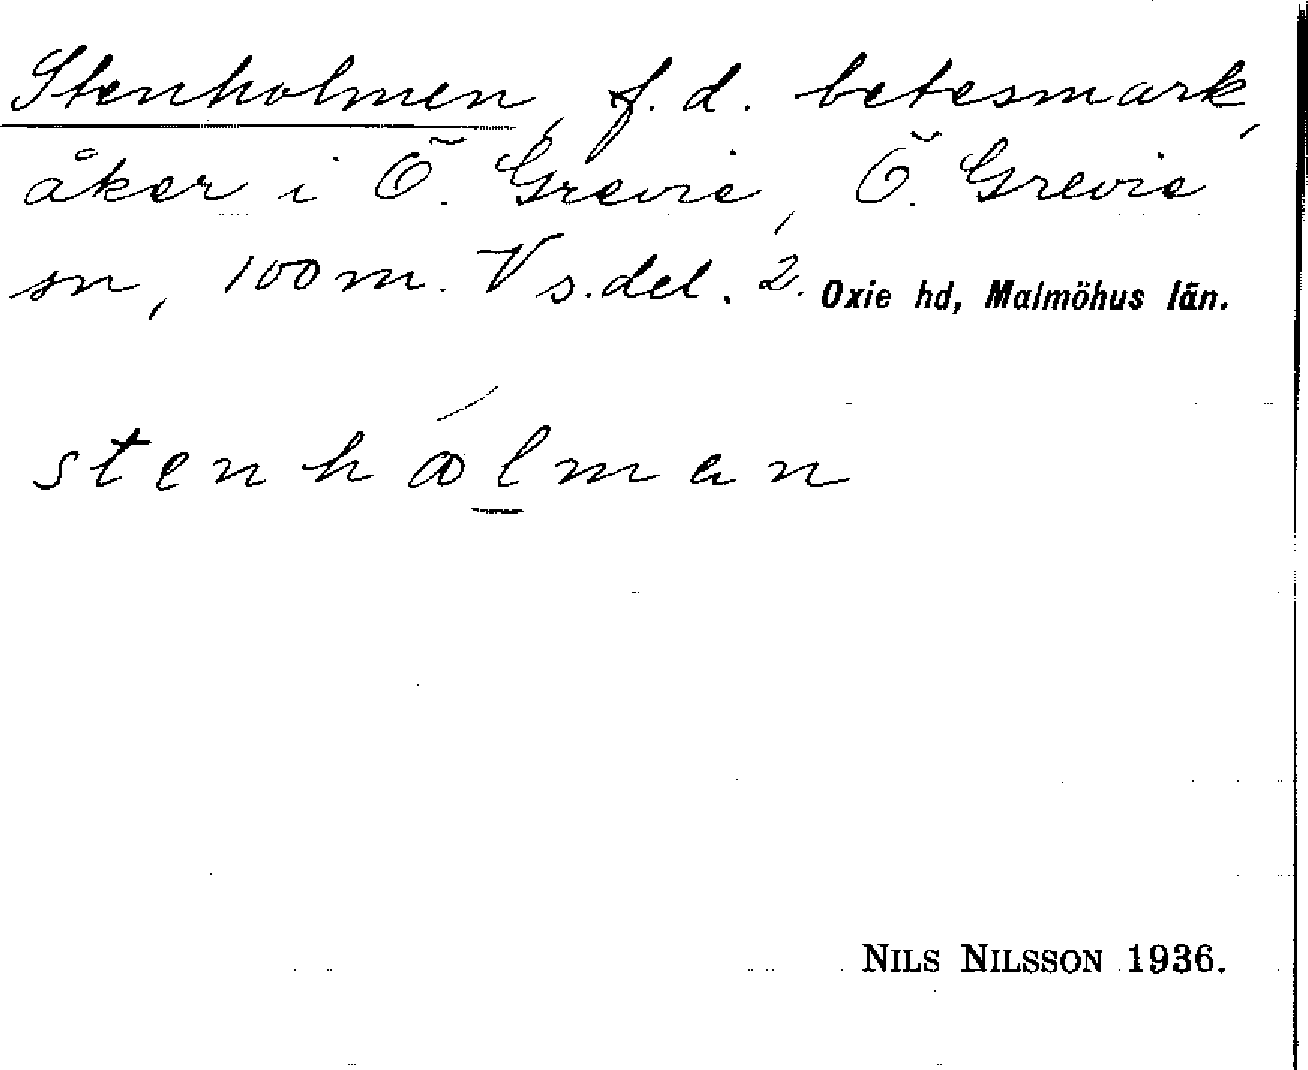 Stenholmen, f.d. betesmark,
åker i Ö. Grevie, Ö. Grevie
sn, 100 m. V s.del. 2. Oxie hd, Malmöhus län.
NILS NILSSON 1936.